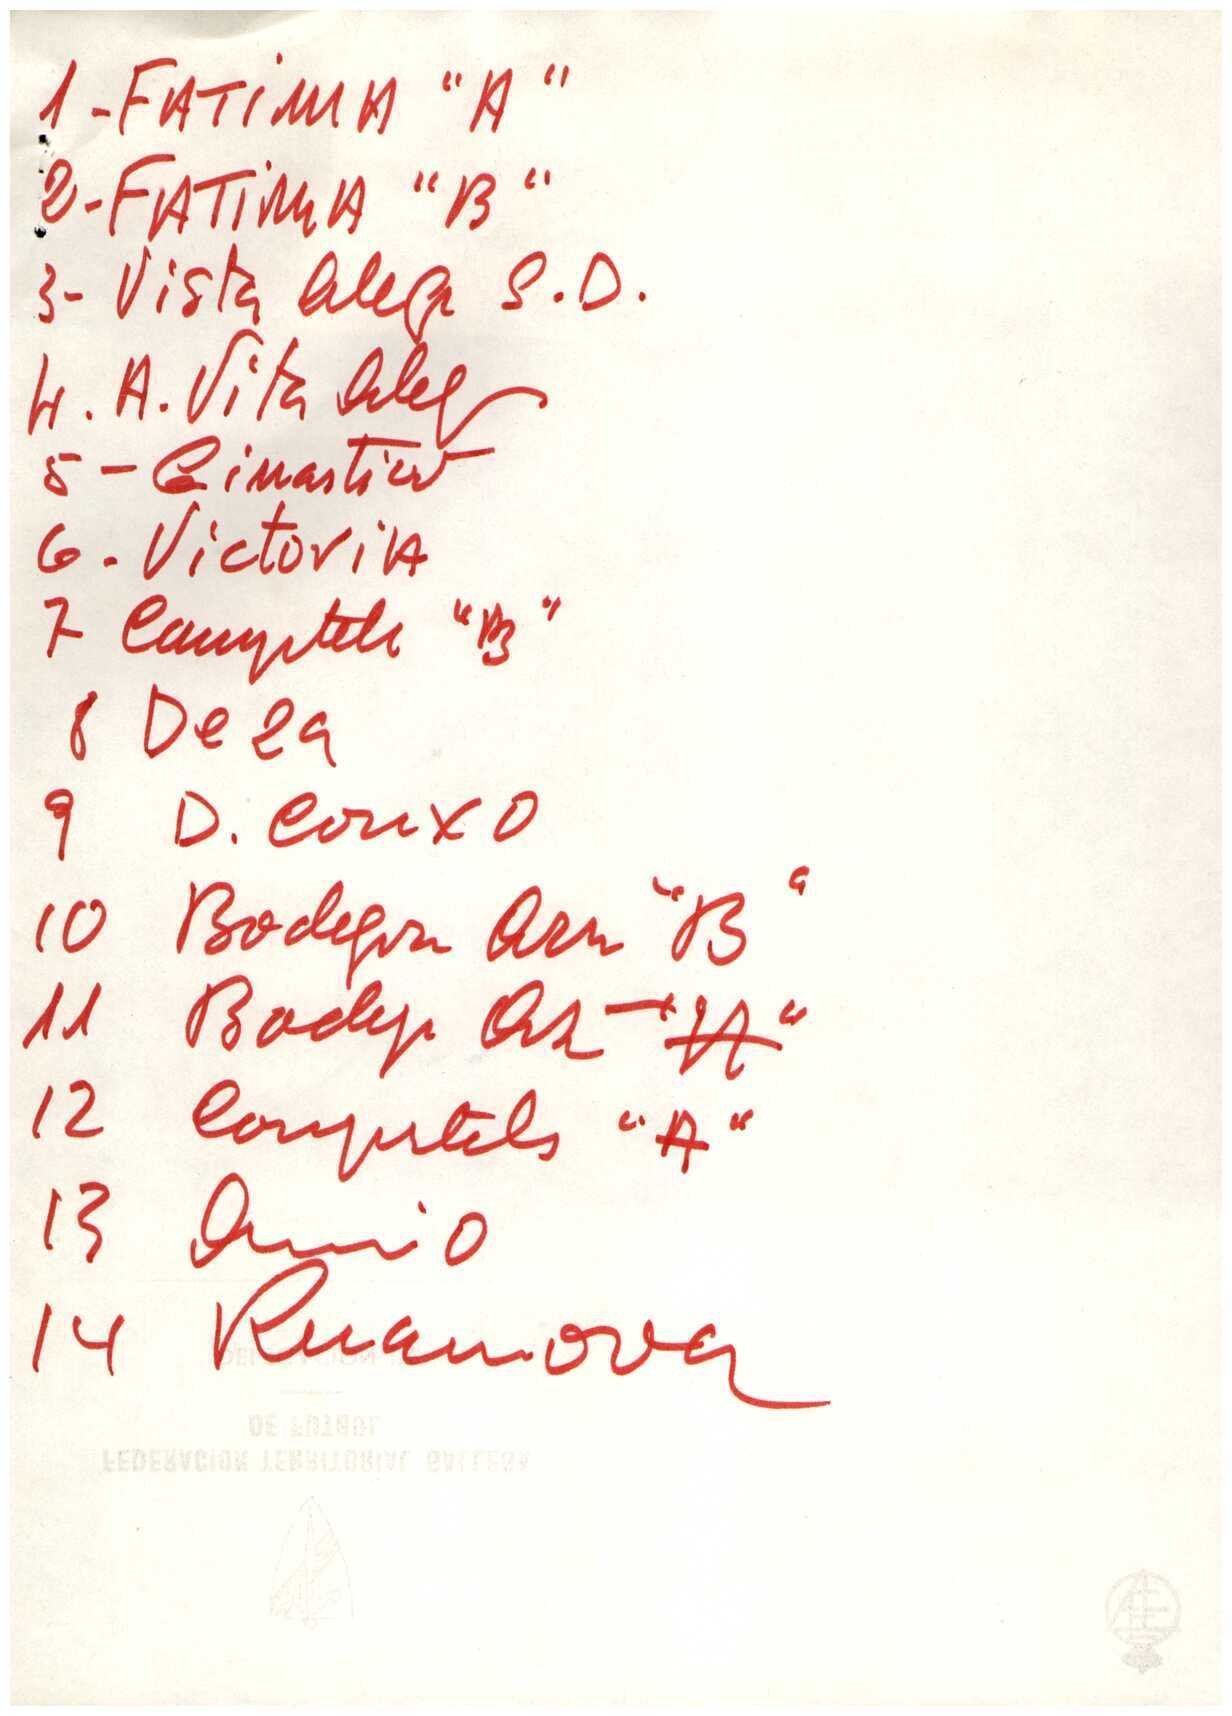 1-FATIMA "A"
2-FATIMA "B"
3- Vista Alegr S.D.
4. A. Vita Aleg
5- Gimastico
6. VictoriA
7 Compstela "B"
8 Deza
9 D. Conxo
10 Bodegon "B"
11 "A"
12 Compstela "A"
13
14 Ruanova
DE FUTBOL
FEDERACION TERRITORIAL GALLEGA